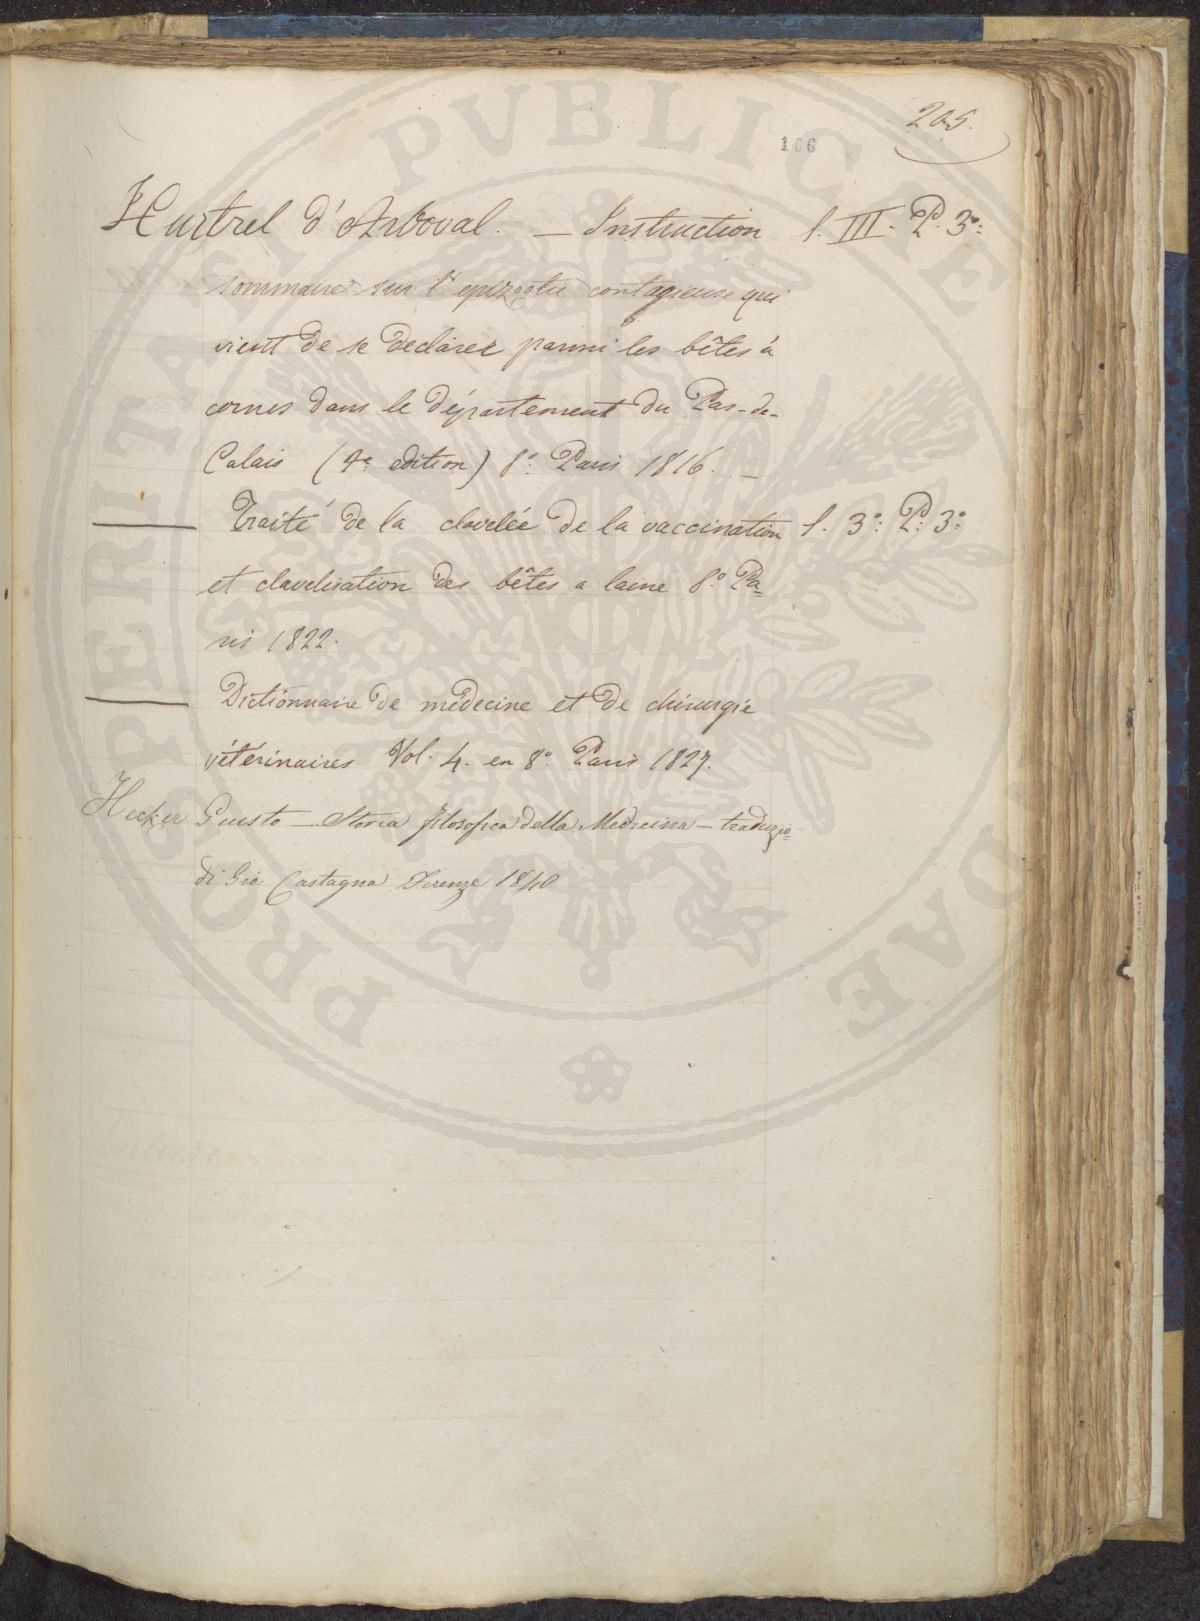 265.
166
Hurtrel d'Arboval. — Instruction S. III. P. 3°:
sommaire sur l'épizootie contagieuse qui
vient de se declarer parmi les bêtes à
cornes dans le département du Pas-de-
Calais (4e edition) 8°. Paris 1816. —
Traité de la clavelée de la vaccination S. 3°: P: 3°:
et clavelisation des bêtes a laine 8°. Pa=
ris 1822.
Dictionnaire de médecine et de chirurgie
vétérinaires Vol. 4. en 8°. Paris 1827.
Hecker Giusto — Storia filosofica della Medicina — traduzio=
di Gio: Castagna Firenze 1840
PROSPERITATI PVBLICAE DAE